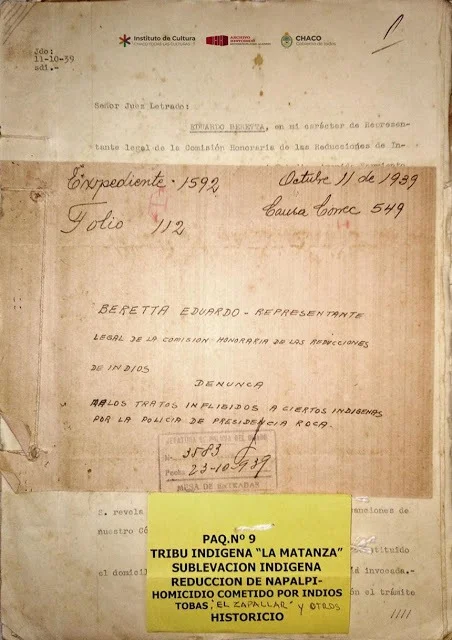 Instituto de Cultura
CHACO
Gobierno de todos
Jdo:
11-10-39
sdi.-
Señor Juez Letrado:
EDUARDO BERETTA, en mi carácter de Represen-
tante legal de la Comisión Honoraria de las Reducciones de In-
Expediente - 1592
Octubre 11 de 1939
Folio 112
Causa Correc 549
BERETTA EDUARDO - REPRESENTANTE
LEGAL DE LA COMISION HONORARIA DE LAS REDUCCIONES
DE INDIOS
DENUNCA
MALOS TRATOS INFLIBIDOS A CIERTOS INDIGENAS
POR LA POLICIA DE PRESIDENCIA ROCA.
Nº 3583
Fecha 23-10-939
MESA DE ENTRADAS
S. revela
nuestro Có
el domicil
invocada.-
ón el trámite
PAQ.Nº 9
TRIBU INDIGENA “LA MATANZA”
SUBLEVACION INDIGENA
REDUCCION DE NAPALPI-
HOMICIDIO COMETIDO POR INDIOS
TOBAS, "EL ZAPALLAR" y OTROS
HISTORICIO